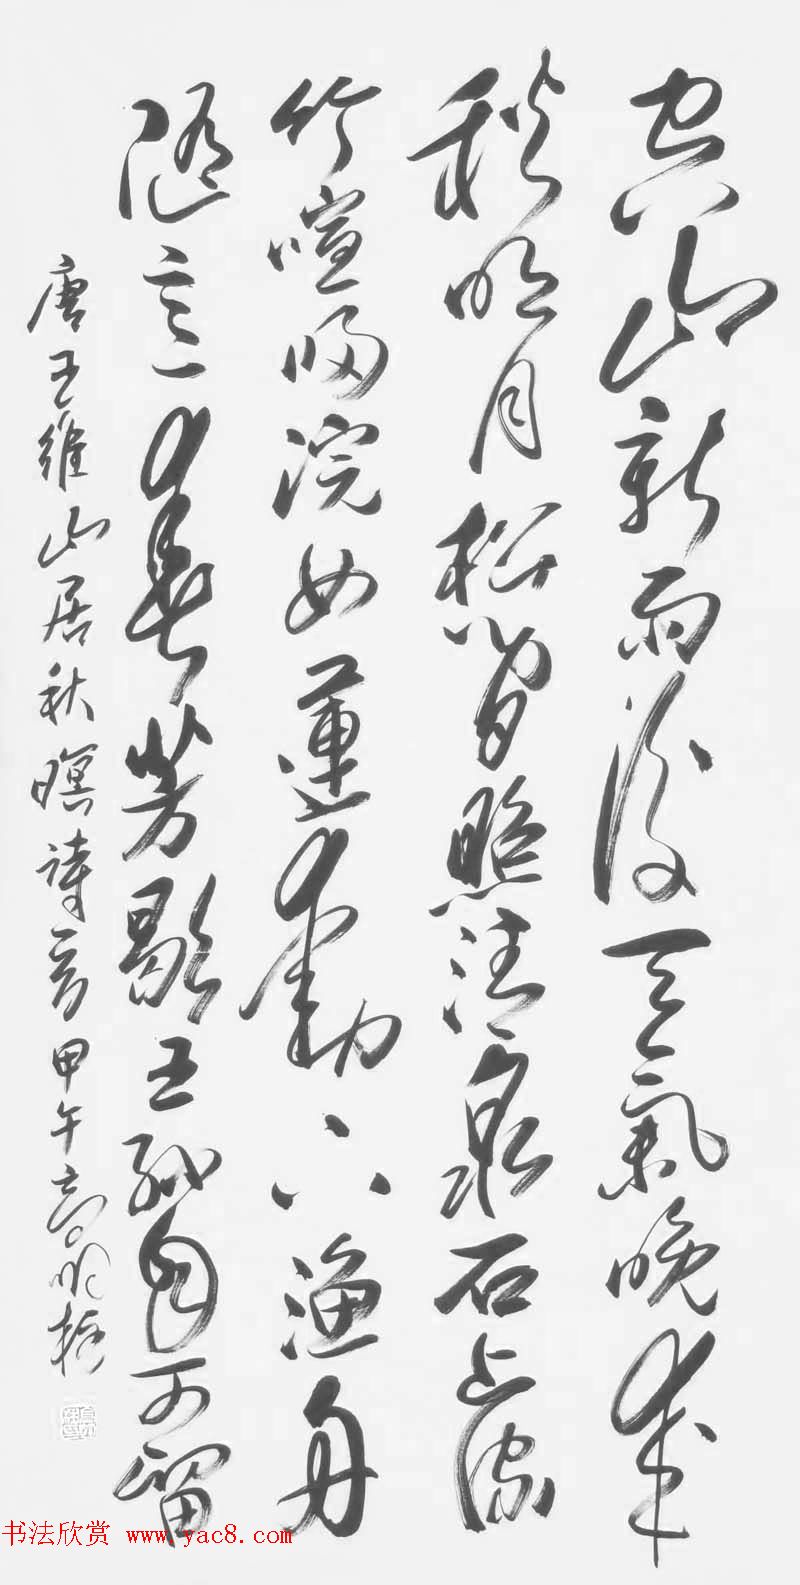 空山新雨後天氣晚来
秋明月松間照清泉石上流
竹喧歸浣女蓮動下漁舟
隨意春芳歇王孫自可留
唐王維山居秋暝詩一首甲午高明柱
书法欣赏 www.yac8.com